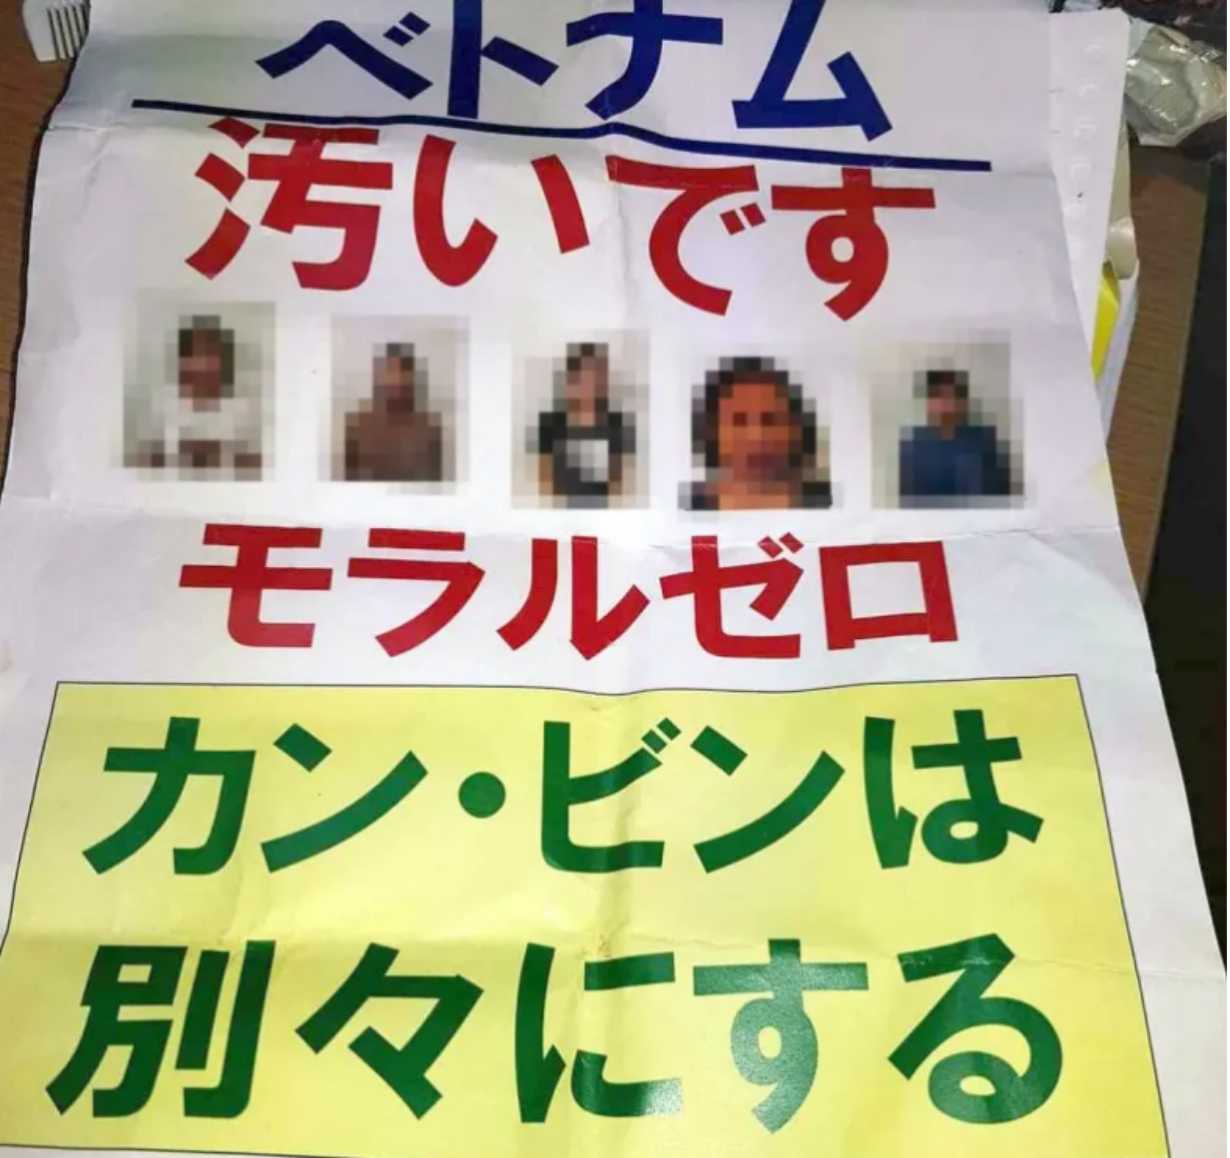 ベトナム
汚いです
モラルゼロ
カン・ビンは
別々にする